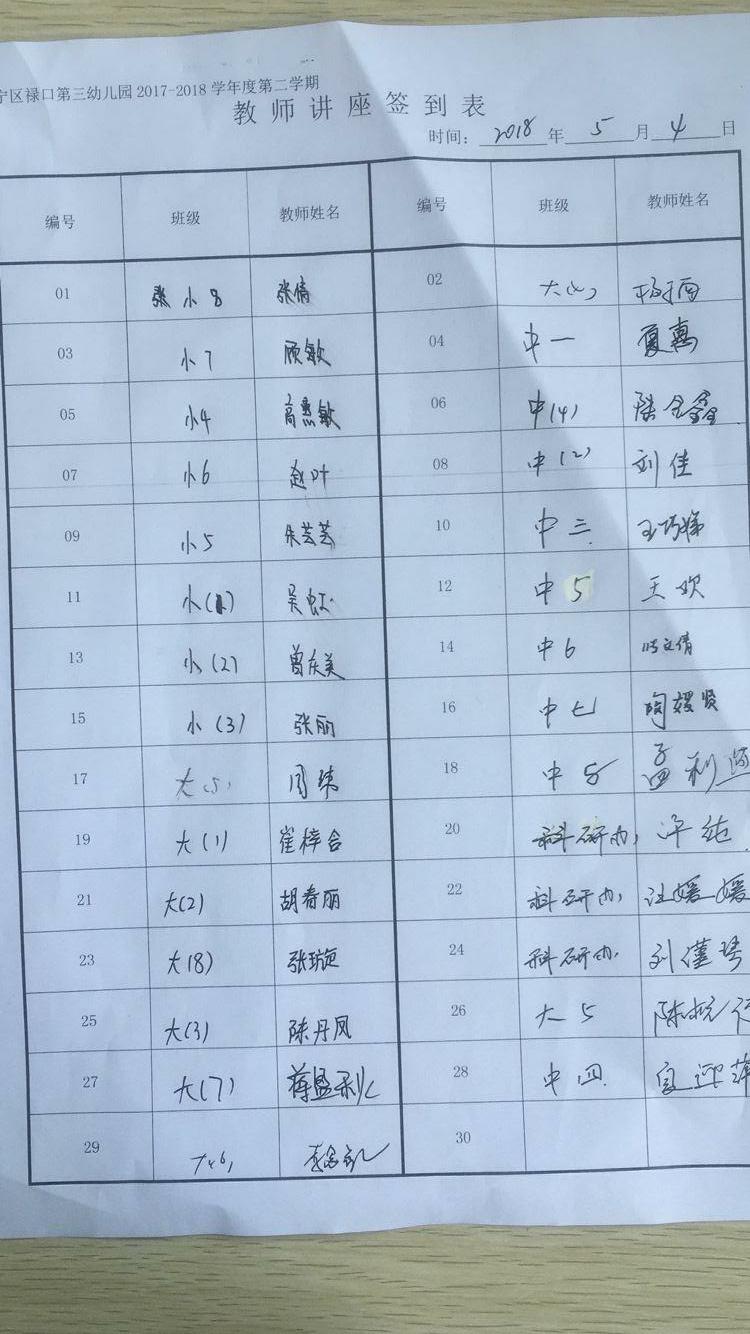 宁区禄口第三幼儿园2017-2018学年度第二学期
教师讲座签到表
时间：2018年5月4日
编号 班级 教师姓名 编号 班级 教师姓名
01 张小8 张倩 02 大(4)
03 小7 顾敏 04 中一 夏惠
05 小4 高燕敏 06 中(4) 陆金鑫
07 小6 赵叶 08 中(2) 刘佳
09 小5 朱芸芸 10 中三 王巧娣
11 小(1) 吴虹 12 中5 王欢
13 小(2) 曾庆美 14 中6 文倩
15 小(3) 张丽 16 中七 陶媛贤
17 大(5) 周玮 18 中8 孟利
19 大(1) 崔梓合 20 科研办 许纯
21 大(2) 胡春丽 22 科研办 汪媛媛
23 大(8) 张璇 24 科研办 刘瑾琴
25 大(3) 陈丹凤 26 大5 陈
27 大(7) 28 中四 宫迎萍
29 大(6) 30